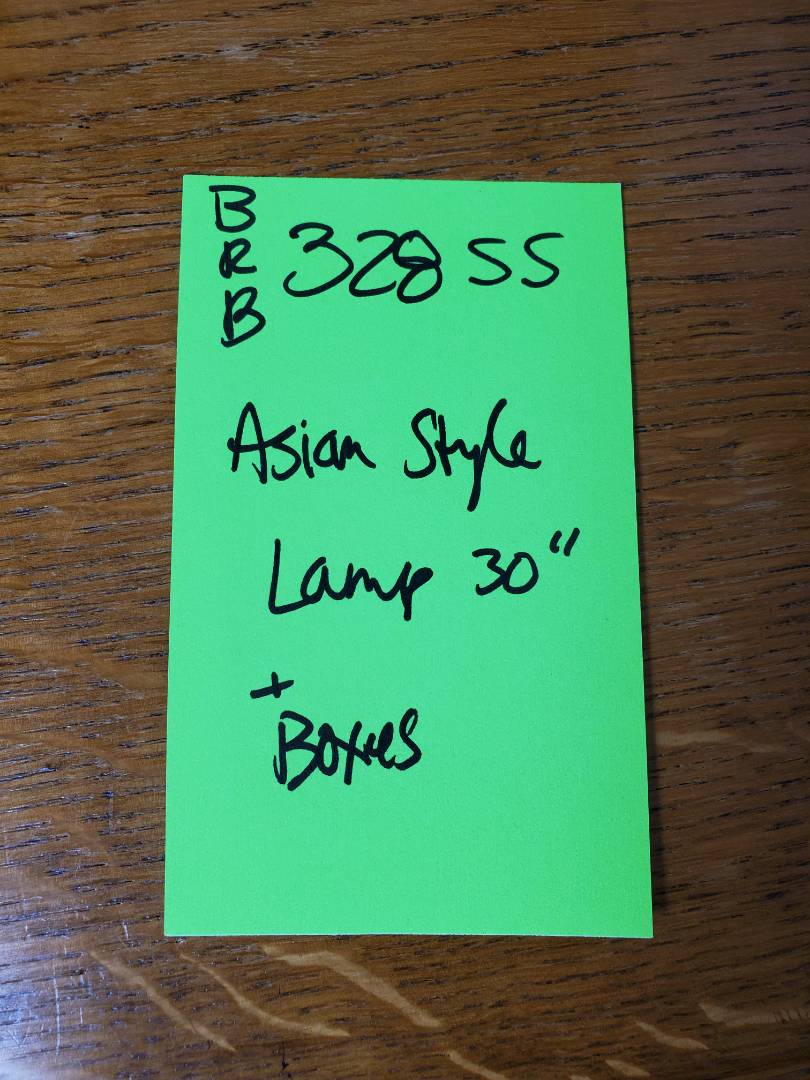 BRB
328 SS
Asian Style
Lamp 30"
+
Boxes